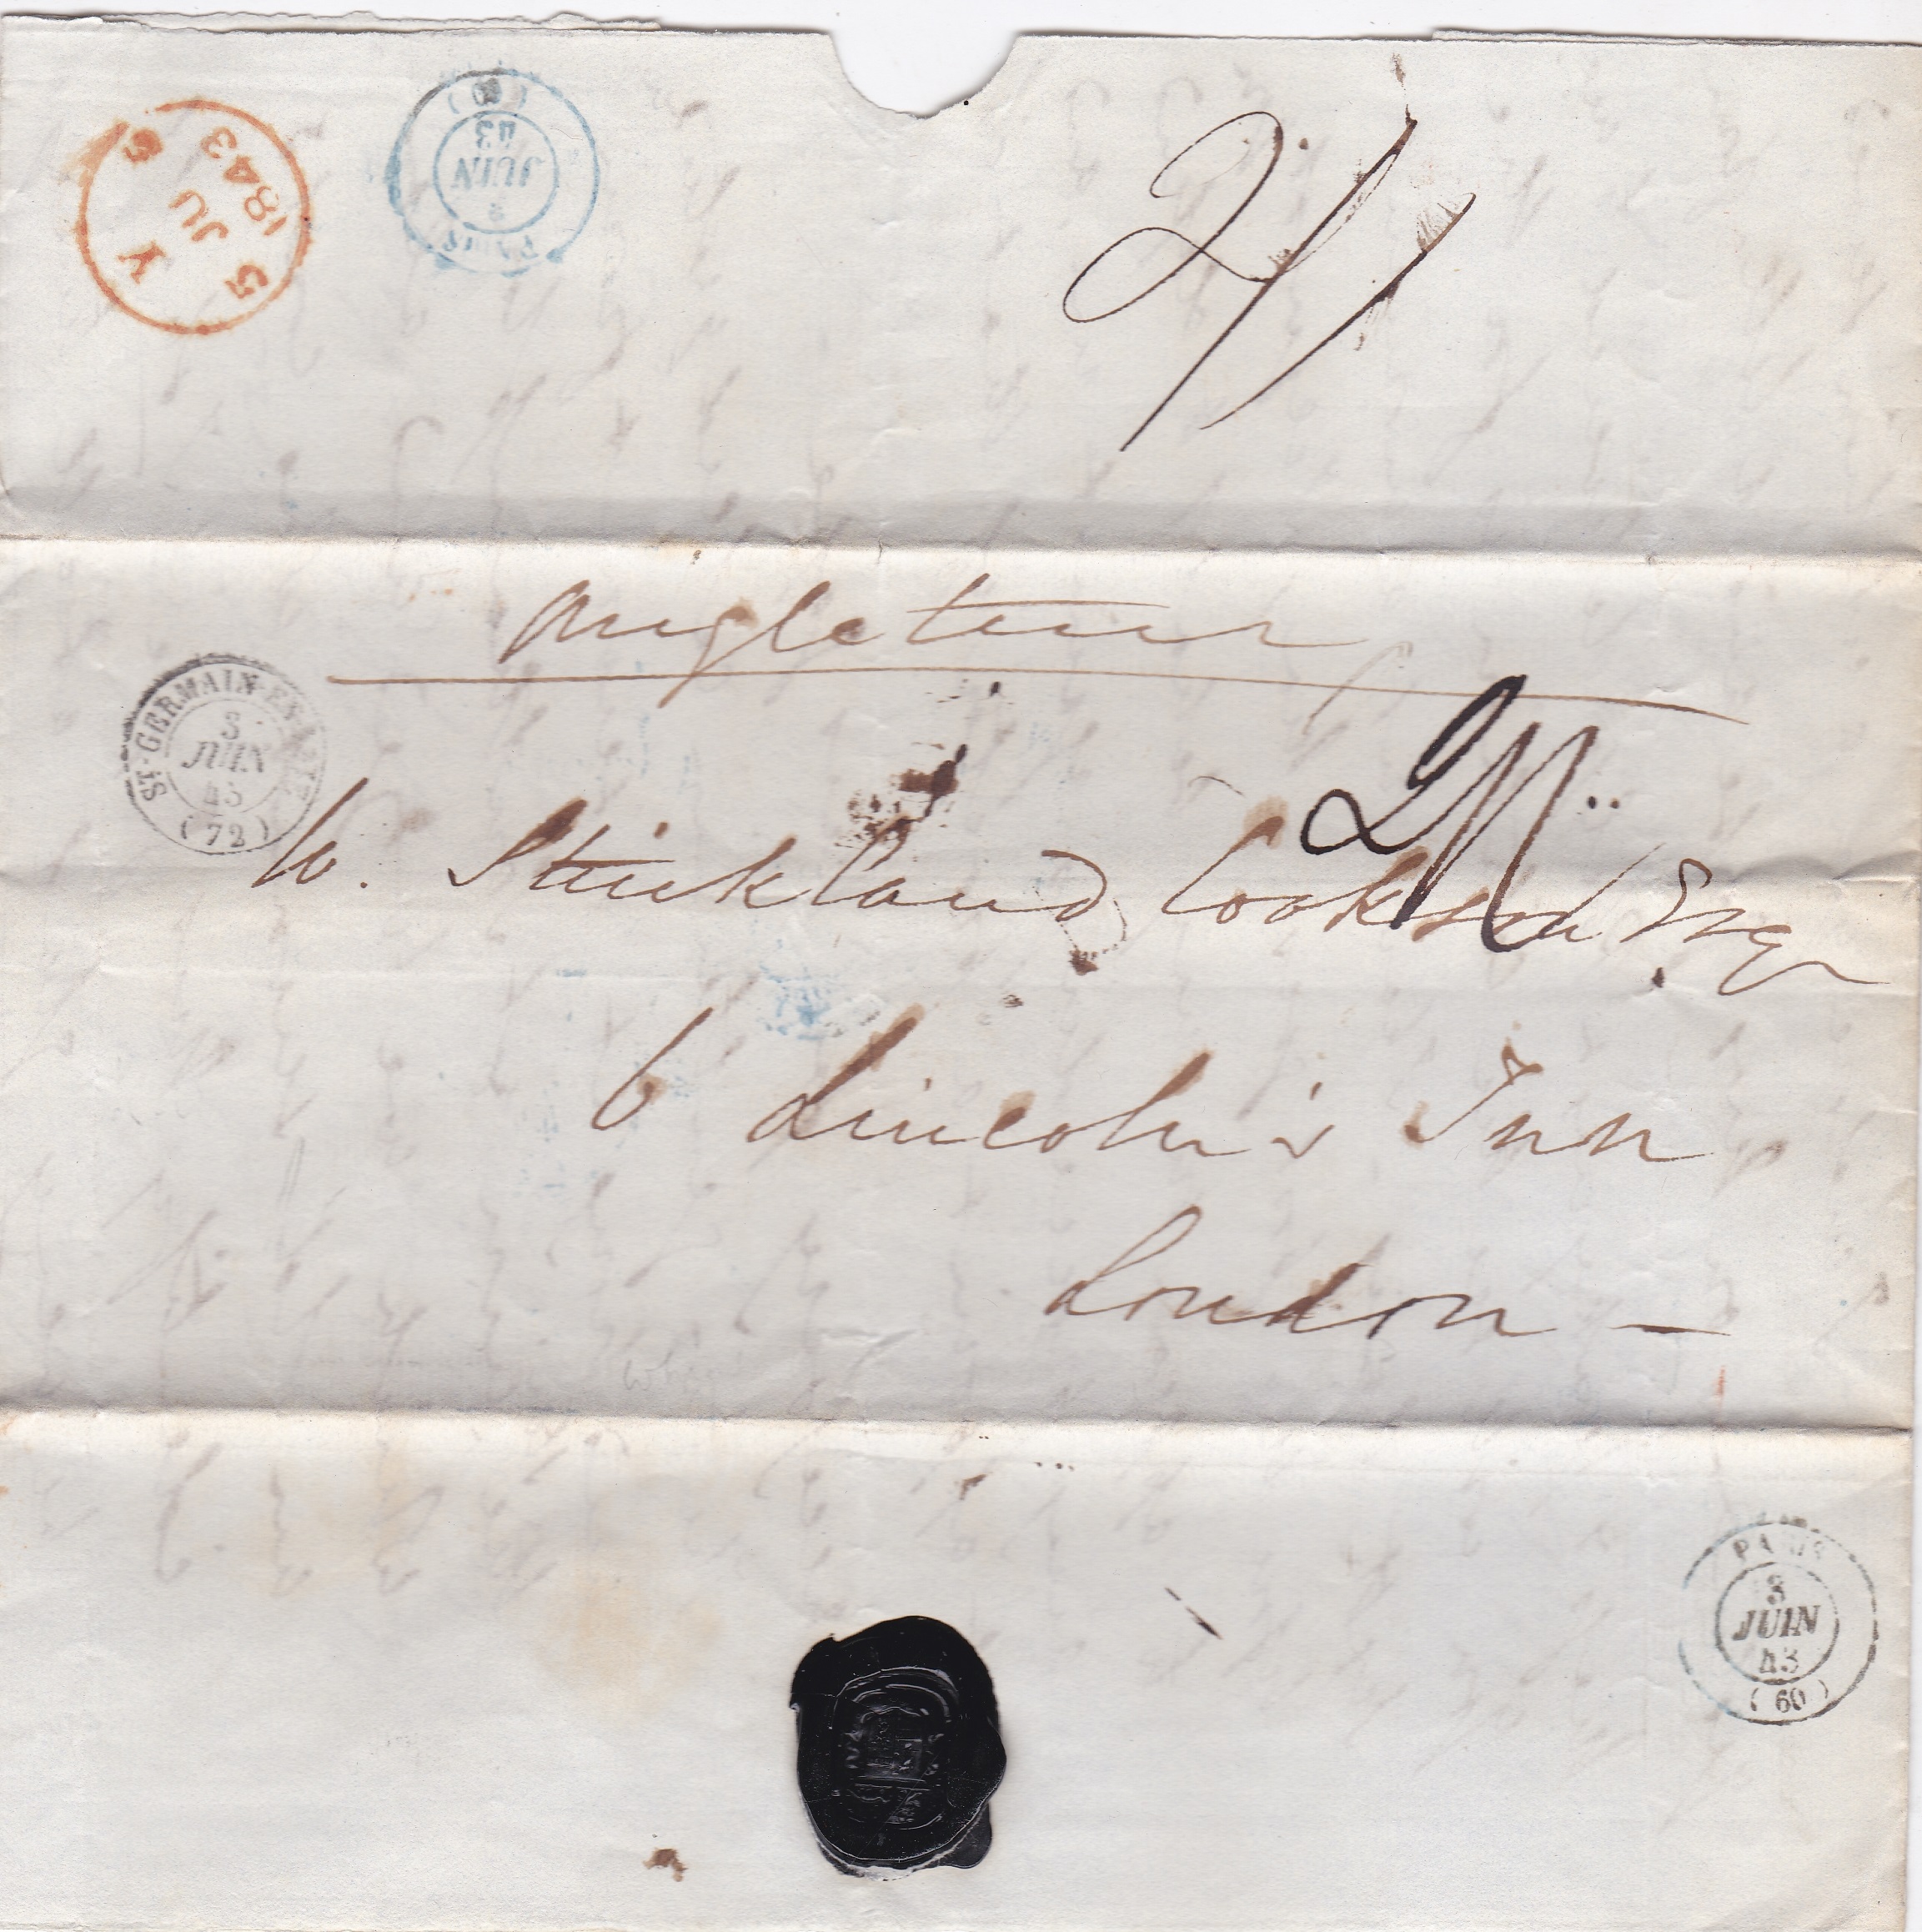 5 JU 5
1843
Y
PARIS
JUIN
43
(60)
2/
Angleterre
ST-GERMAIN-EN-LAYE
3
JUIN
43
(72)
W. Strickland Cookson Esqr
6 Lincoln's Inn
London —
PARIS
3
JUIN
43
(60)